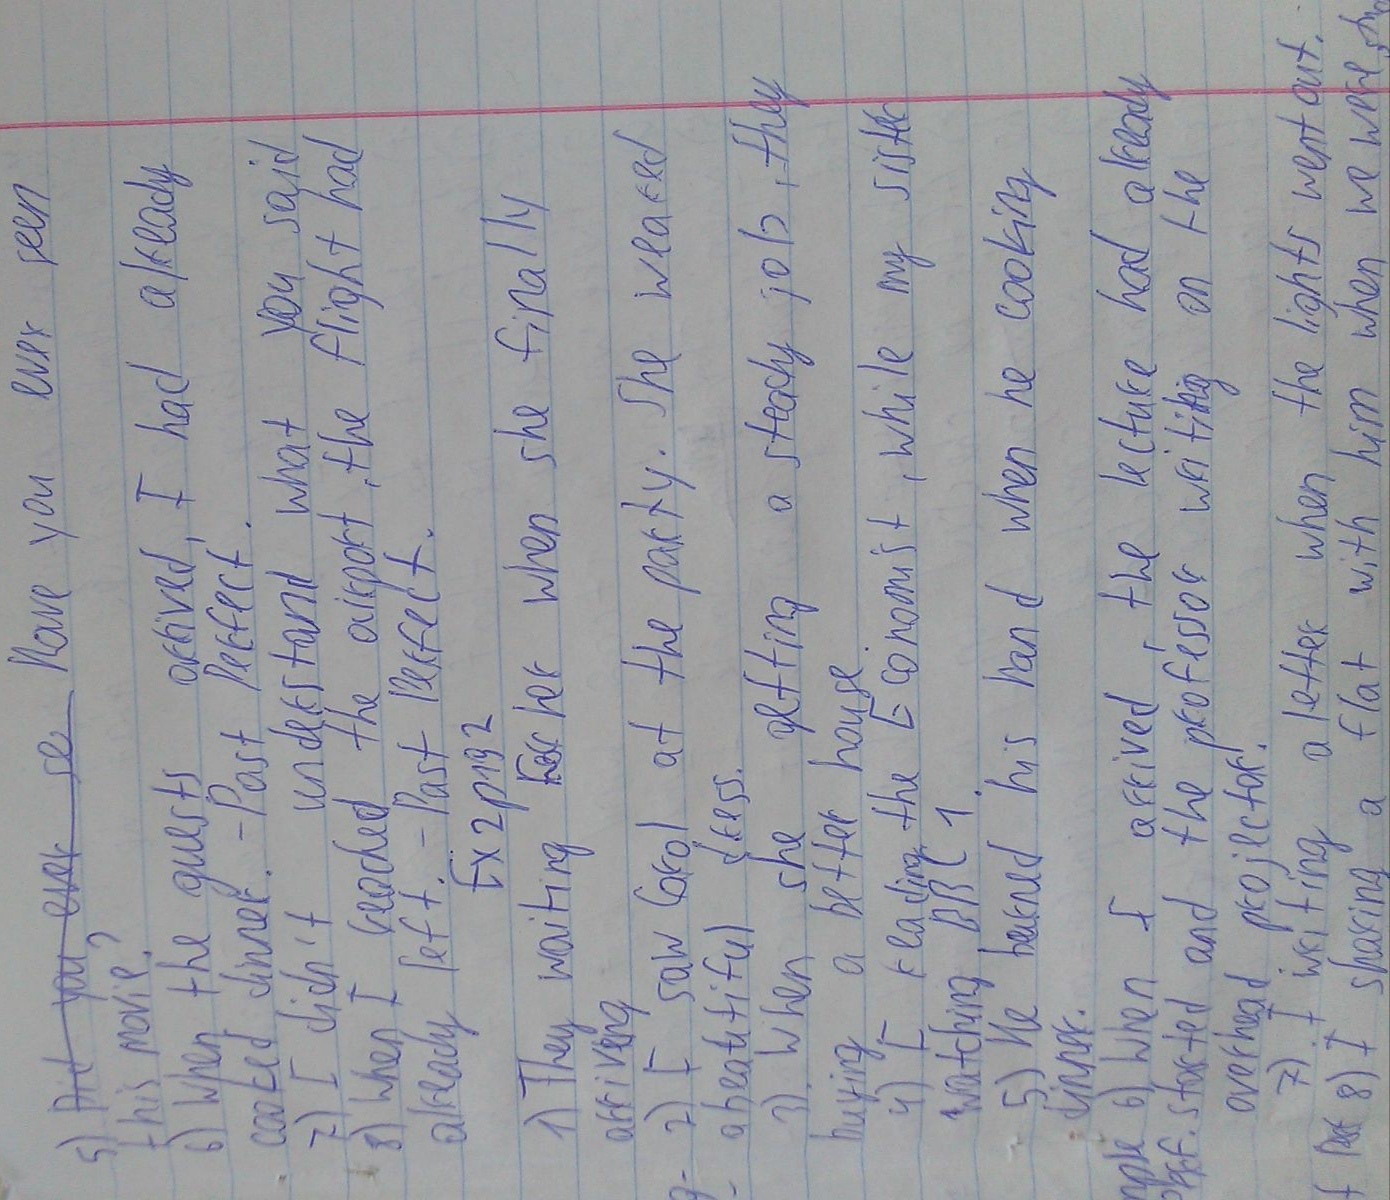 5) Did you ever se Have you ever seen
this movie?
6) When the guests arrived, I had already
cooked dinner. - Past Perfect.
7) I didn't understand what you said
8) When I reached the airport, the flight had
already left. - Past Perfect.
Ex2p192
1) They waiting for her when she finally
arriving
2) I saw Carol at the party. She weared
a beatutiful dress.
3) When she getting a steady job, they
buying a better house.
4) I reading the Economist, while my sister
watching BBC 1.
5) He bearned his hand when he cooking
dinner.
6) When I arrived, the lecture had already
started and the professor writing on the
overhead projector.
7) I writing a letter when the lights went out.
8) I sharing a flat with him when we were